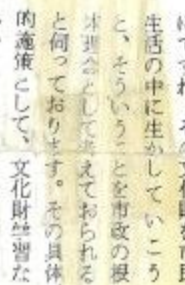 生活の中に生かしていこう
と、そういうことを市政の根
本理念として考えておられる
と伺っております。その具体
的施策として、文化財学習な